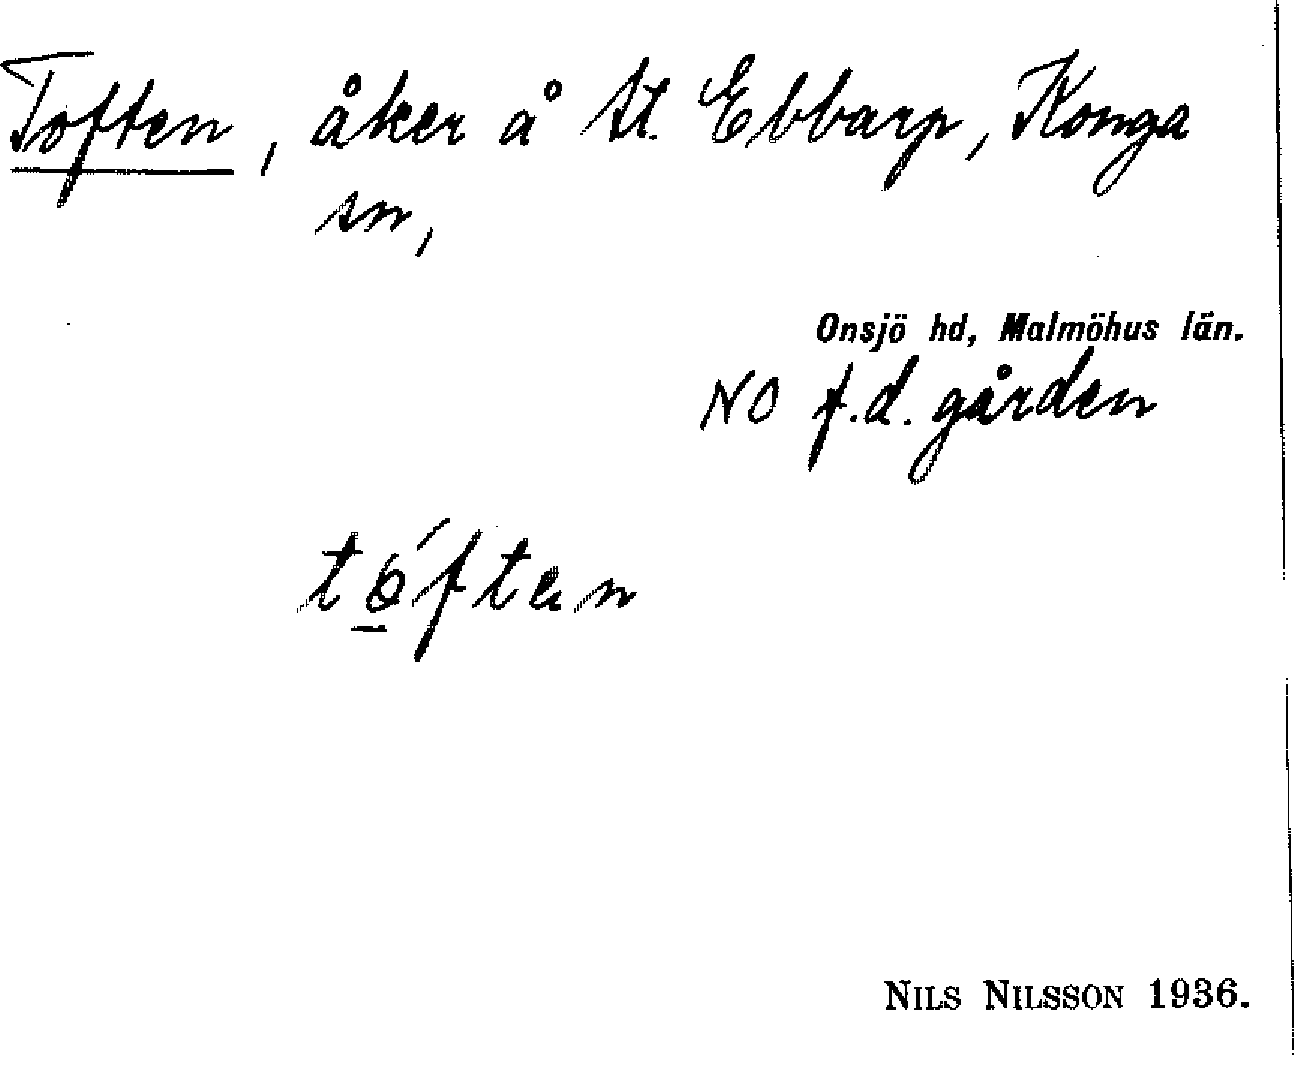 Toften, åker å St. Ebbarp, Konga
sn,
Onsjö hd, Malmöhus län.
NO f.d. gården
tǫ́ften
NILS NILSSON 1936.